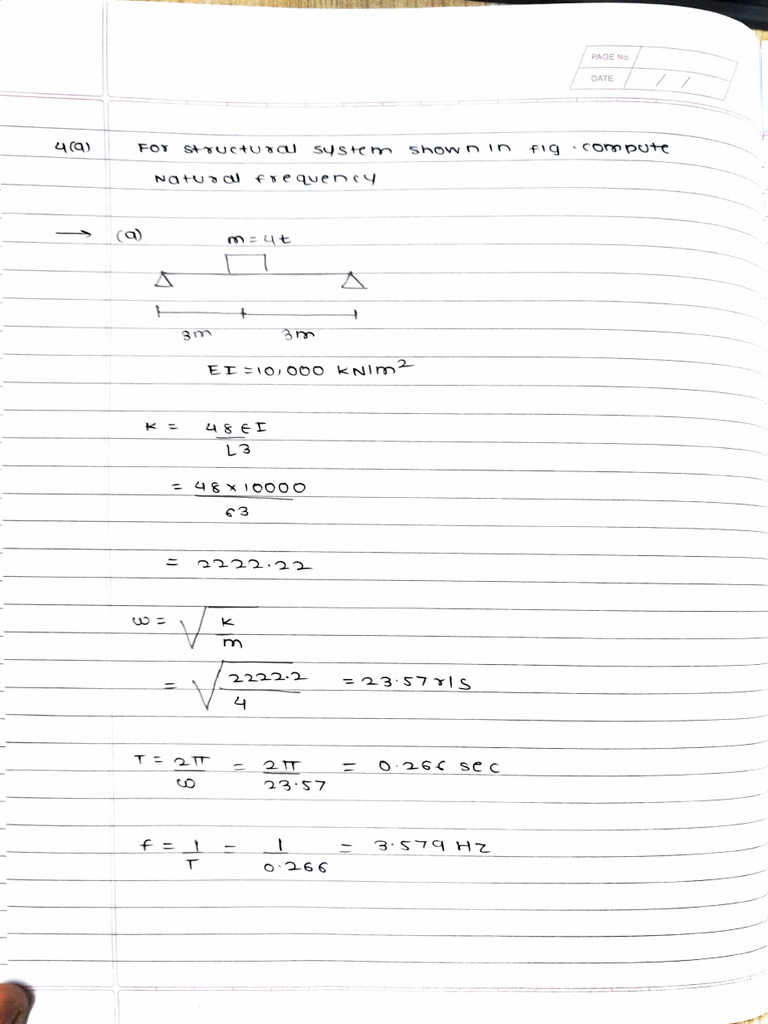 PAGE No.
DATE / /
4(a) For structural system shown in fig . compute
Natural frequency
→ (a)
m = 4t
3m 3m
EI = 10,000 KN/m²
K = 48 EI
L3
= 48 × 10000
63
= 2222.22
ω = √ K
m
= √ 2222.2 = 23.57 r/s
4
T = 2π = 2π = 0.266 sec
ω 23.57
f = 1 = 1 = 3.579 Hz
T 0.266